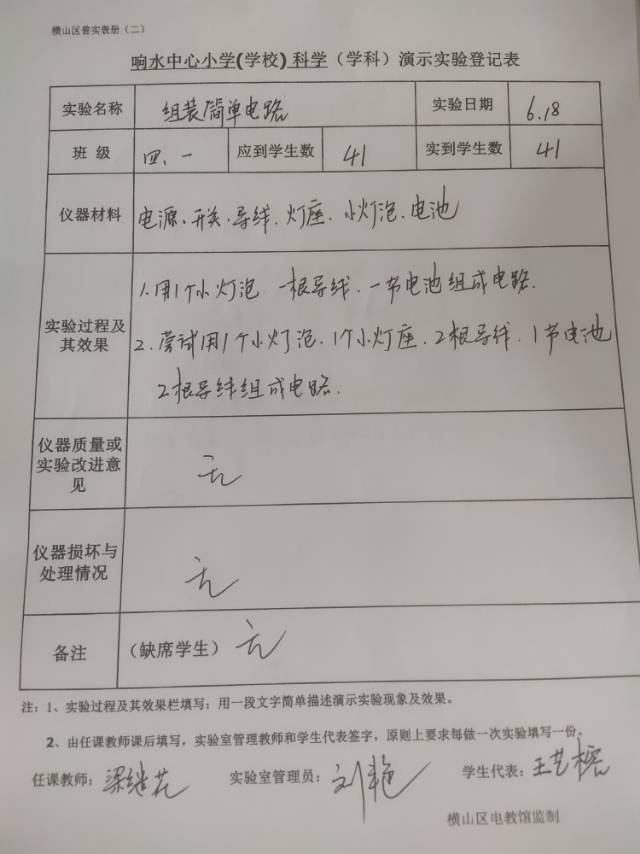 横山区普实表册（二）
响水中心小学(学校) 科学（学科）演示实验登记表
实验名称 组装简单电路 实验日期 6.18
班 级 四、一 应到学生数 41 实到学生数 41
仪器材料 电源、开关、导线、灯座、小灯泡、电池
实验过程及其效果
1.用1个小灯泡 一根导线、一节电池组成电路.
2.尝试用1个小灯泡、1个小灯座、2根导线、1节电池
2根导线组成电路.
仪器质量或
实验改进意
见
无
仪器损坏与
处理情况
无
备注 （缺席学生）无
注：1、实验过程及其效果栏填写：用一段文字简单描述演示实验现象及效果。
2、由任课教师课后填写，实验室管理教师和学生代表签字，原则上要求每做一次实验填写一份。
任课教师：梁继芸 实验室管理员：刘艳 学生代表：王艺榕
横山区电教馆监制